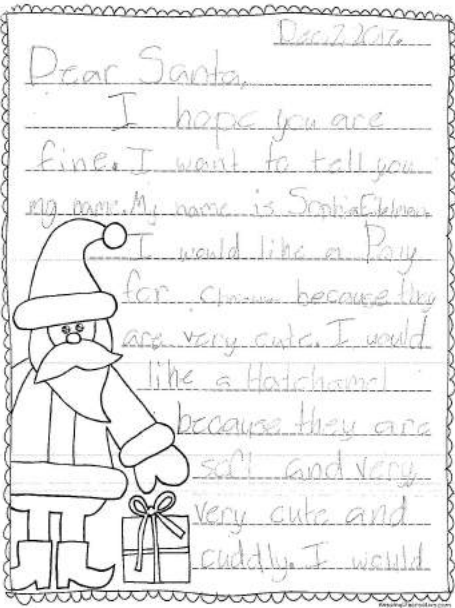 Dec. 7, 2017.
Dear Santa,
I hope you are
fine. I want to tell you
my name. My name is Sophia
I would like a
for because they
are very cute. I would
like a Hatchamel
because they are
soft and very
very cute and
cuddly. I would